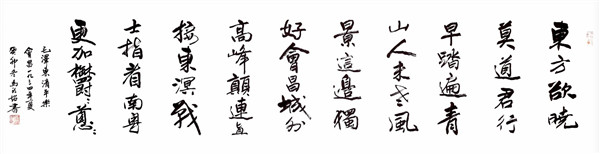 東方欲曉
莫道君行
早踏遍青
山人未老風
景這邊獨
好會昌城外
高峰顛連直
接東溟戰
士指看南粵
更加鬱〻蔥〻
毛澤東清平樂
會昌一九三四年夏
癸卯冬馬書